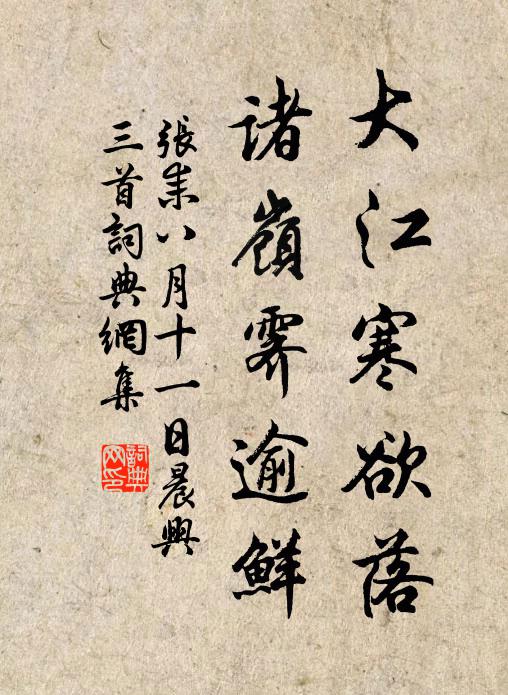 大江寒欲落
諸嶺霽逾鮮
張耒八月十一日晨興
三首詞典網集
詞典
网印